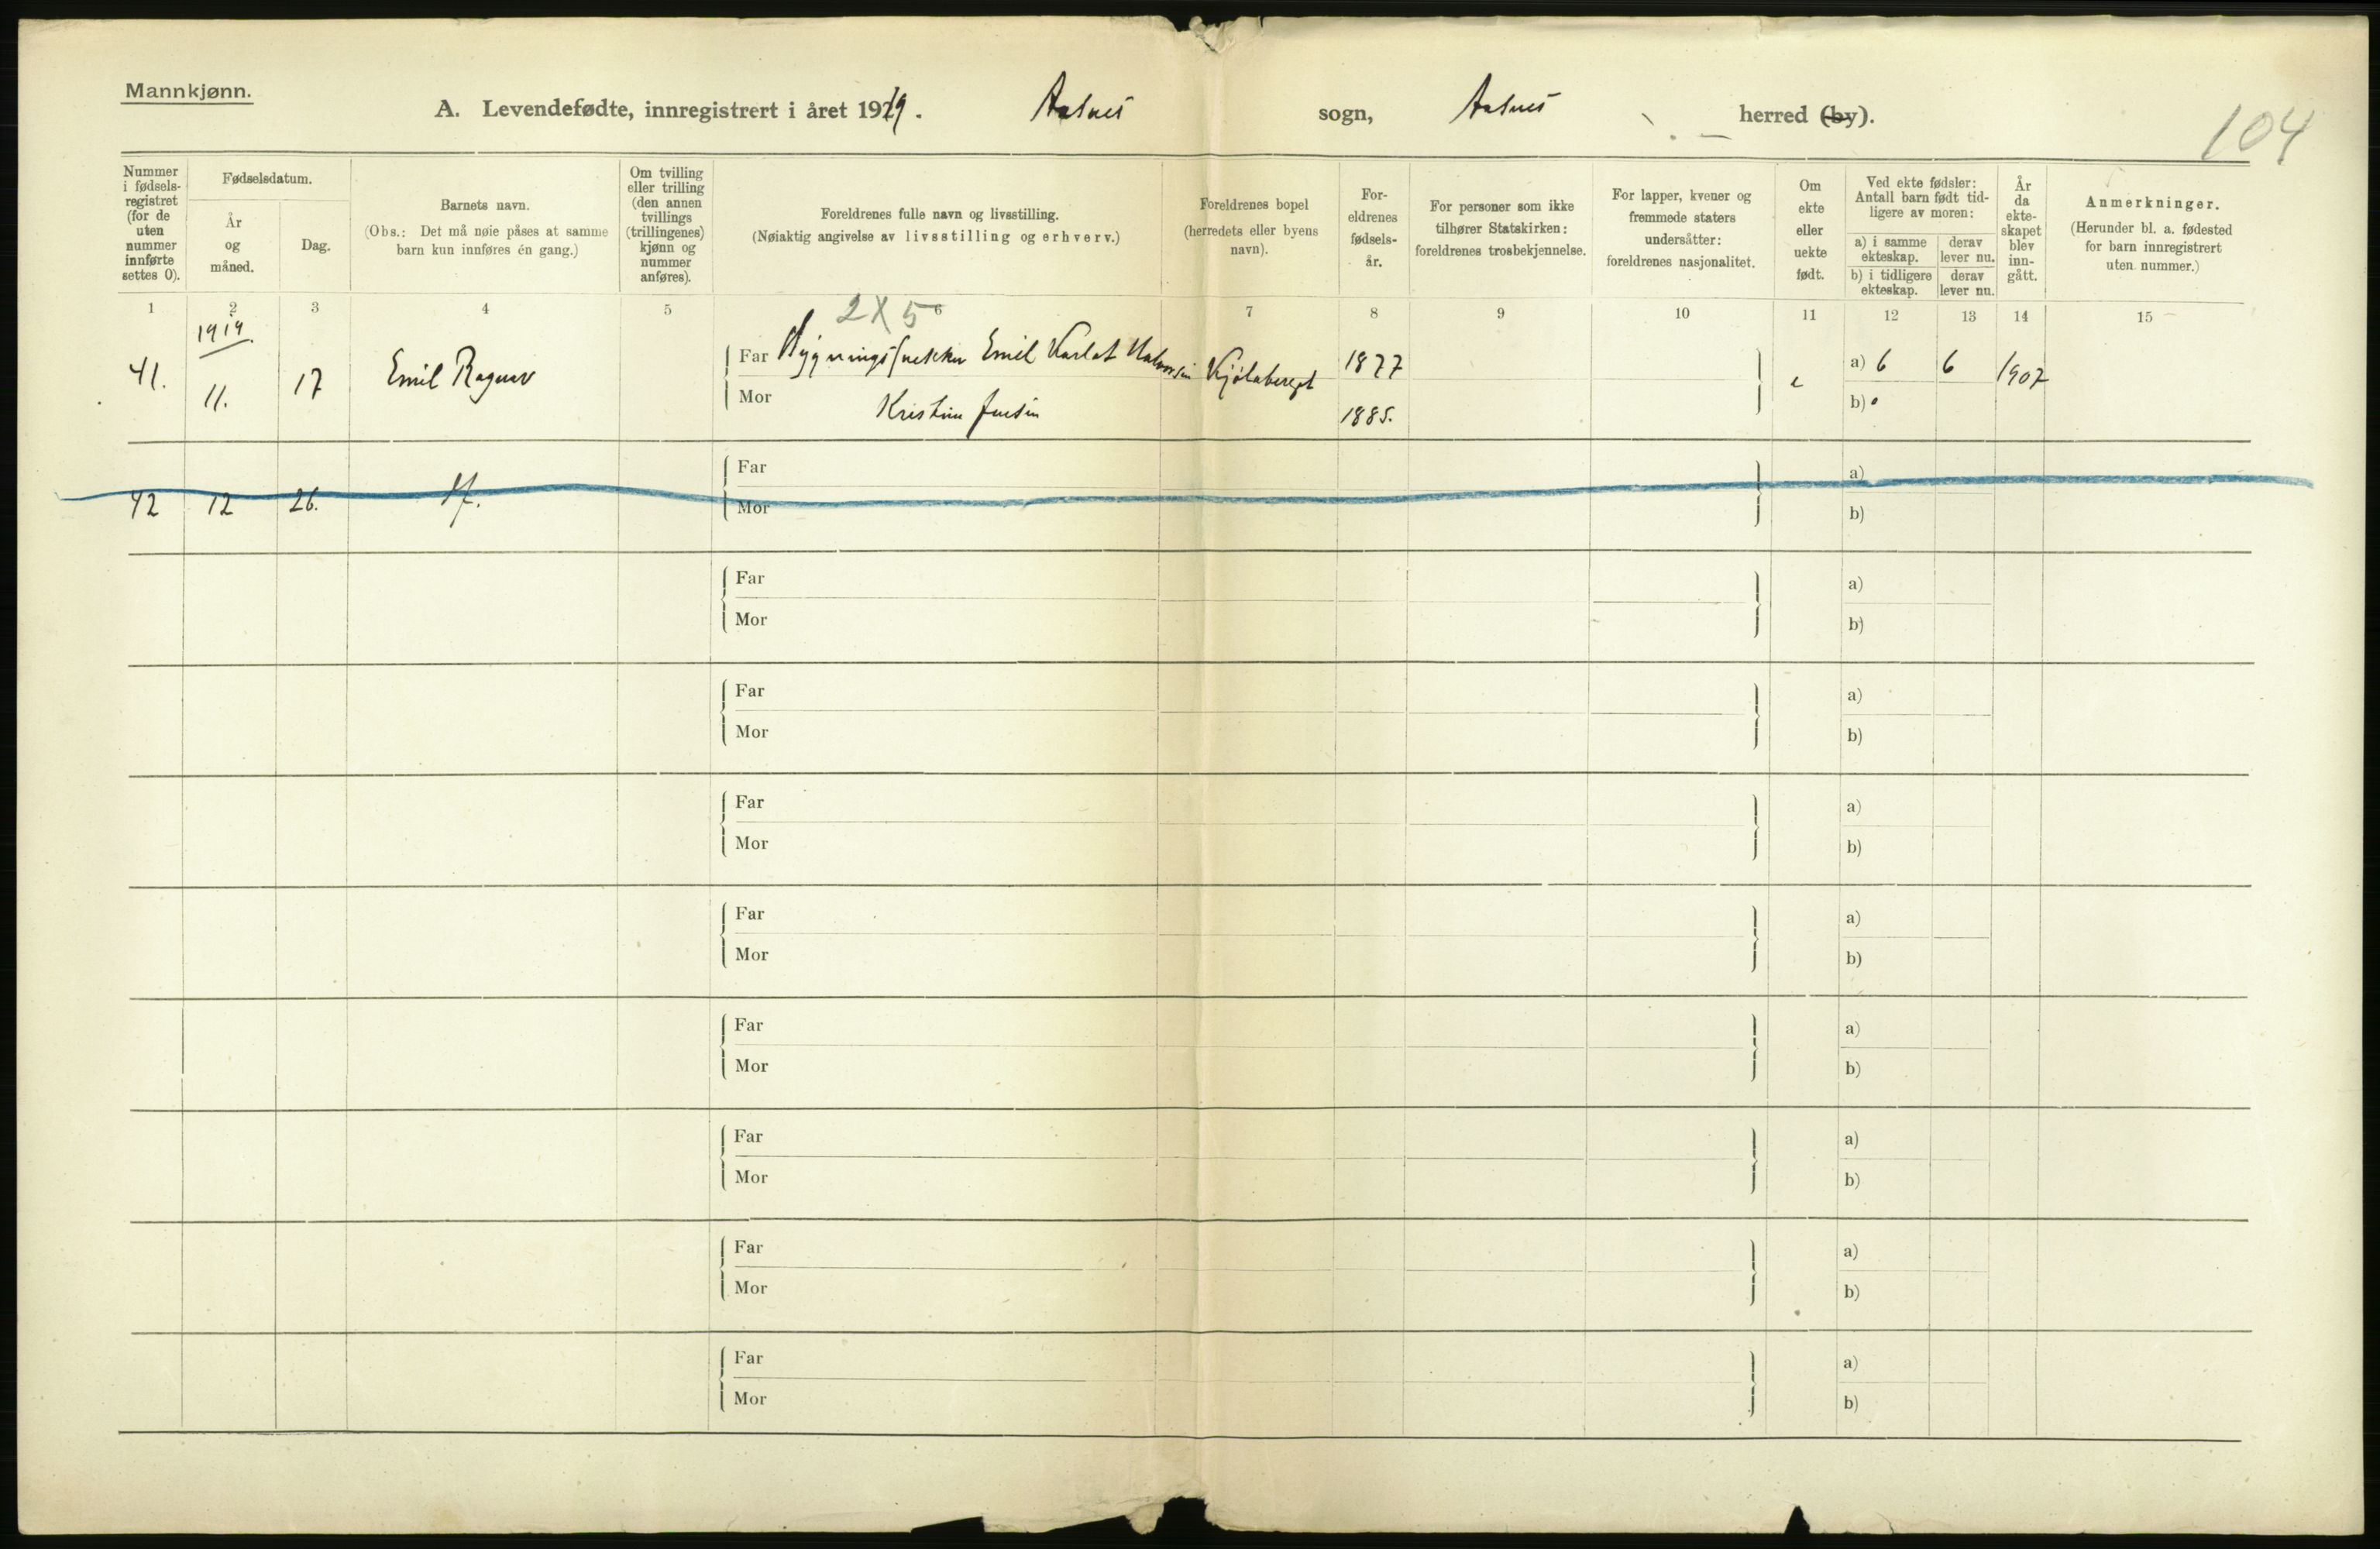 Mannkjønn.
A. Levendefødte, innregistrert i året 1919. Aasnes sogn, Aasnes herred (by).
104
Nummer i fødsels-registret (for de uten nummer innførte settes 0).
Fødselsdatum.
År og måned.
Dag.
Barnets navn.
(Obs.: Det må nøie påses at samme barn kun innføres én gang.)
Om tvilling eller trilling (den annen tvillings (trillingenes) kjønn og nummer anføres).
Foreldrenes fulle navn og livsstilling.
(Nøiaktig angivelse av livsstilling og erhverv.)
Foreldrenes bopel (herredets eller byens navn).
For-eldrenes fødsels-år.
For personer som ikke tilhører Statskirken: foreldrenes trosbekjennelse.
For lapper, kvener og fremmede staters undersåtter: foreldrenes nasjonalitet.
Om ekte eller uekte født.
Ved ekte fødsler: Antall barn født tid-ligere av moren:
a) i samme ekteskap.
derav lever nu.
b) i tidligere ekteskap.
derav lever nu.
År da ekte-skapet blev inn-gått.
Anmerkninger.
(Herunder bl. a. fødested for barn innregistrert uten nummer.)
1 2 3 4 5 6 7 8 9 10 11 12 13 14 15
2 X 5
1919.
41. 11. 17 Emil Ragnar
Far Emil 1877 e a) 6 6 1907
Mor Kristine Jensen 1885. b)
42 12 26.
Far a)
Mor b)
Far a)
Mor b)
Far a)
Mor b)
Far a)
Mor b)
Far a)
Mor b)
Far a)
Mor b)
Far a)
Mor b)
Far a)
Mor b)
Far a)
Mor b)